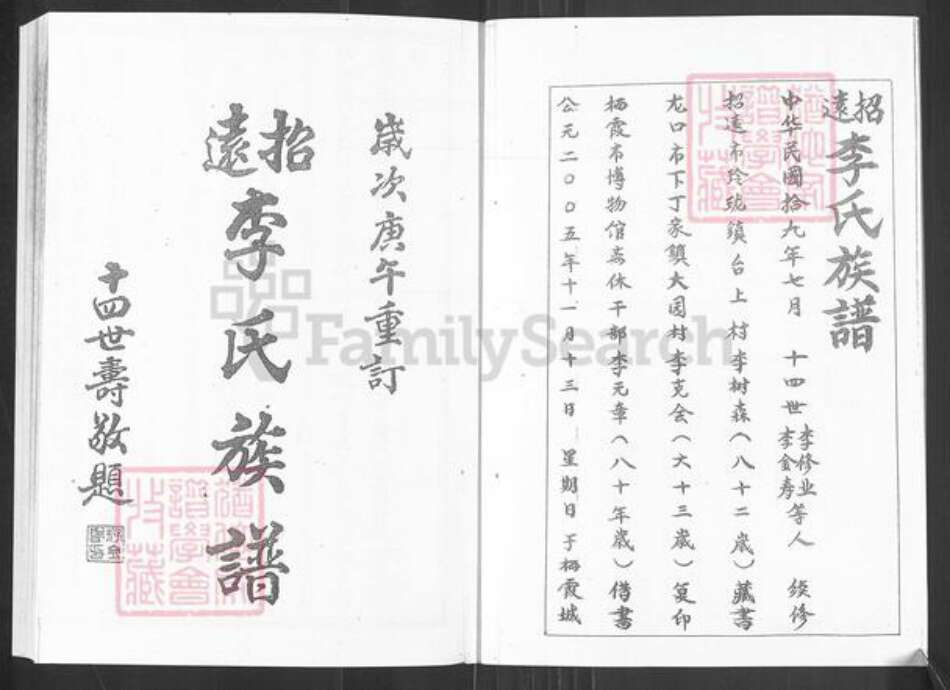 招遠李氏族譜
中华民國拾九年七月 十四世 李修业 李金寿 等人 续修
招遠市玲珑鎮台上村李树森(八十二歲)藏書
龙口市下丁家鎮大园村李克会(六十三歲)复印
栖霞市博物馆离休干部李元章(八十年歲)借書
公元二00五年十一月十三日 星期日于栖霞城
歲次庚午重訂
招遠李氏族譜
十四世壽敬題
譜學會
收藏
譜學會
收藏
FamilySearch